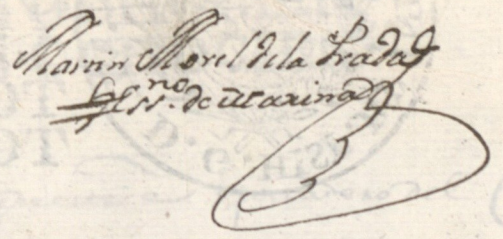 Martin Morel de la Prada
Essno. de Marina